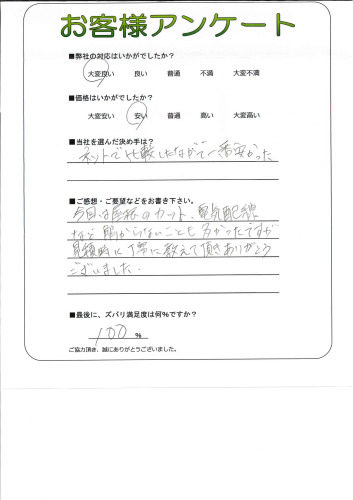 お客様アンケート
■弊社の対応はいかがでしたか？
大変良い 良い 普通 不満 大変不満
■価格はいかがでしたか？
大変安い 安い 普通 高い 大変高い
■当社を選んだ決め手は？
ネットで比較したなかで一番安かった
■ご感想・ご要望などをお書き下さい。
今回は座板のカット、電気配線
など 解からないことも多かったですが
見積時に丁寧に教えて頂きありがとう
ございました.
■最後に、ズバリ満足度は何%ですか？
100 %
ご協力頂き、誠にありがとうございました。